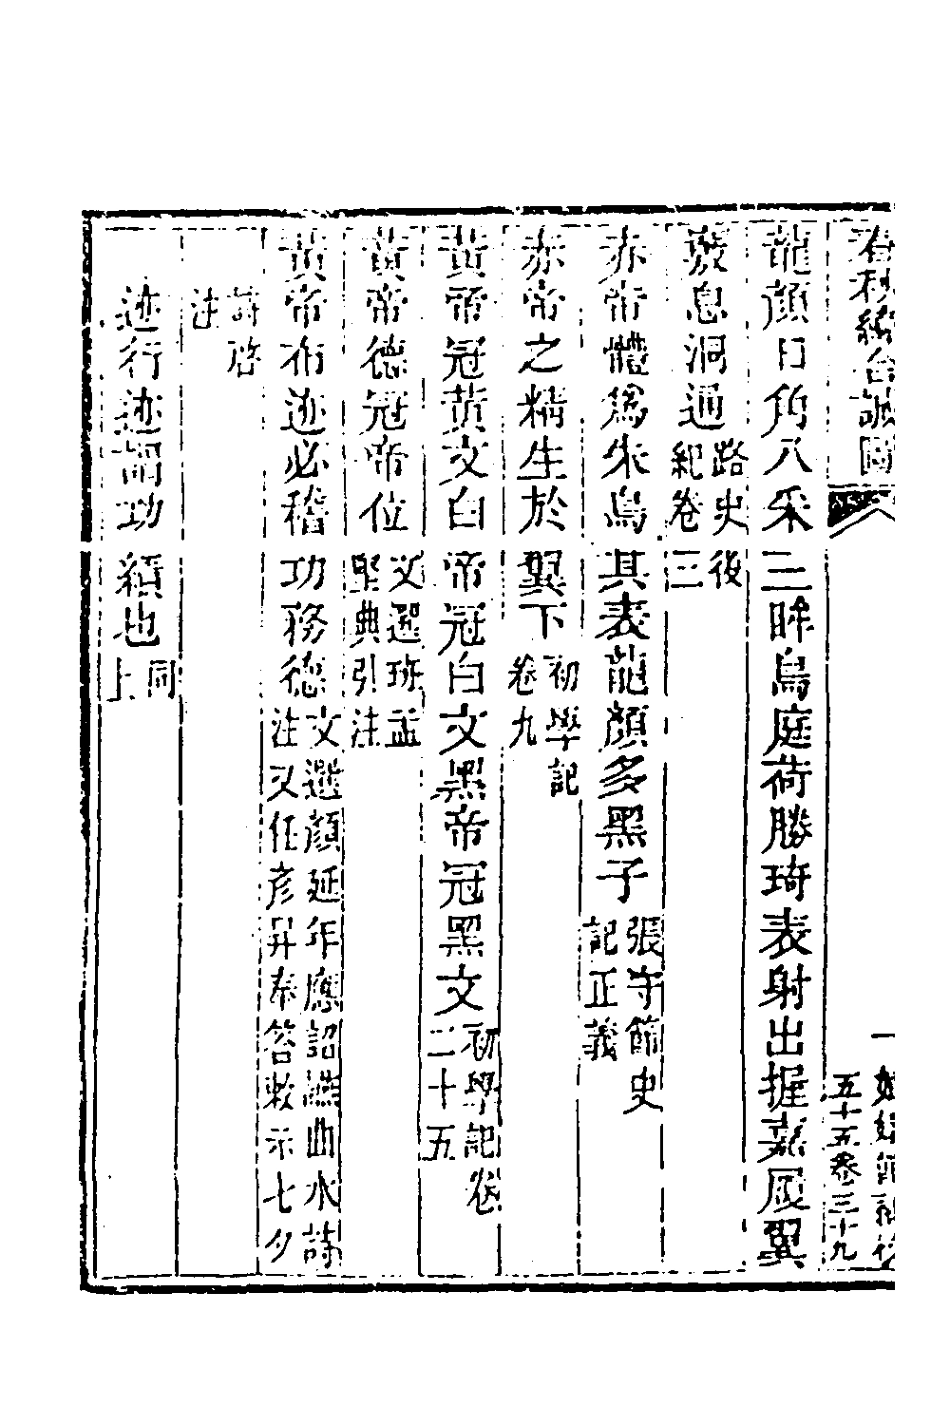 春秋緯合誠圖
一
五十五卷三十九
龍顏日角八采三眸鳥庭荷勝琦表射出握嘉履翼
竅息洞通路史後紀卷三
赤帝體爲朱鳥其表龍顏多黑子張守節史記正義
赤帝之精生於翼下初學記卷九
黃帝冠黃文白帝冠白文黑帝冠黑文初學記卷二十五
黃帝德冠帝位文選班孟堅典引注
黃帝布迹必稽功務德文選顏延年應詔讌曲水詩注又任彥昇奉答敕示七夕
詩啓注
迹行迹謂功績也同上